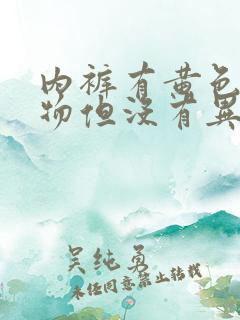 内裤有黄色
物但没有异
吴纯勇
未经同意禁止转载